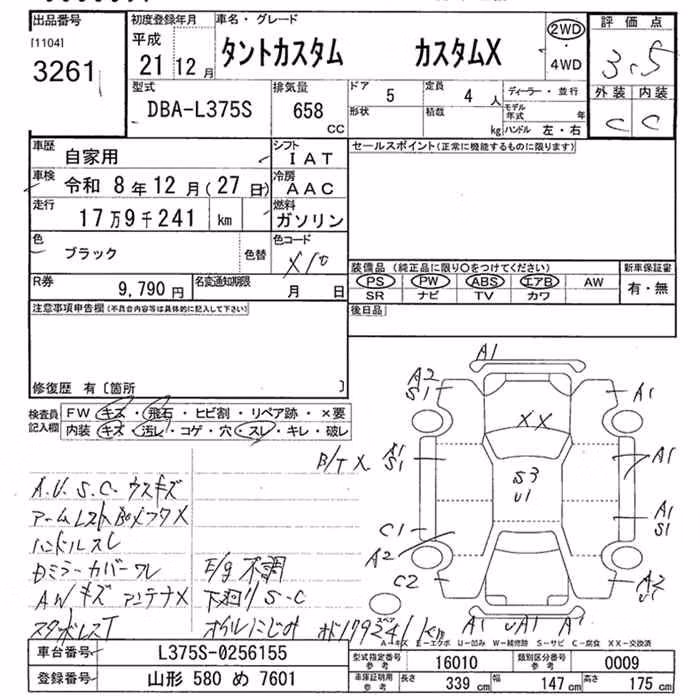 出品番号 初度登録年月 車名・グレード 評価点
[1104] 平成 2WD
3261 21 12月 タントカスタム カスタムX 4WD 3.5
型式 排気量 ドア 5 定員 4人 ディーラー・並行 外装 内装
DBA-L375S 658 CC 形状 積載 kg モデル年式 年 C C
ハンドル 左・右
車歴 自家用 シフト IAT セールスポイント(正常に機能するものに限ります)
車検 令和 8年 12月(27日) 冷房 AAC
走行 17万9千241 km 燃料 ガソリン
色 ブラック 色替 色コード X10
装備品(純正品に限り○をつけてください) 新車保証書
R券 9,790円 名変通知期限 月 日 PS PW ABS エアB AW 有・無
SR ナビ TV カワ
注意事項申告欄(不具合内容等は具体的に記入して下さい) 後日品
修復歴 有[箇所 ]
検査員記入欄 FW キズ・飛石・ヒビ割・リペア跡・×要
内装 キズ・汚レ・コゲ・穴・スレ・キレ・破レ
A1
A2 S1 A1
XX
B/T X A1 S1 A1
S3 U1
A.U S.C ウスキズ
アームレスト X A1 S1
ハンドルスレ C1
Dミラーカバーワレ E/g不調 A2
AWキズ アンテナX 下廻りS-C C2 A2 U1
スタッドレスT オイルにじみ 179241km A1 UA1 A1
A-キズ E-エクボ U-凹み W-補修跡 S-サビ C-腐食 XX-交換済
車台番号 L375S-0256155 型式指定番号 参考 16010 類別区分番号 参考 0009
登録番号 山形 580 め 7601 車庫証明用 参考 長さ 339cm 幅 147cm 高さ 175cm